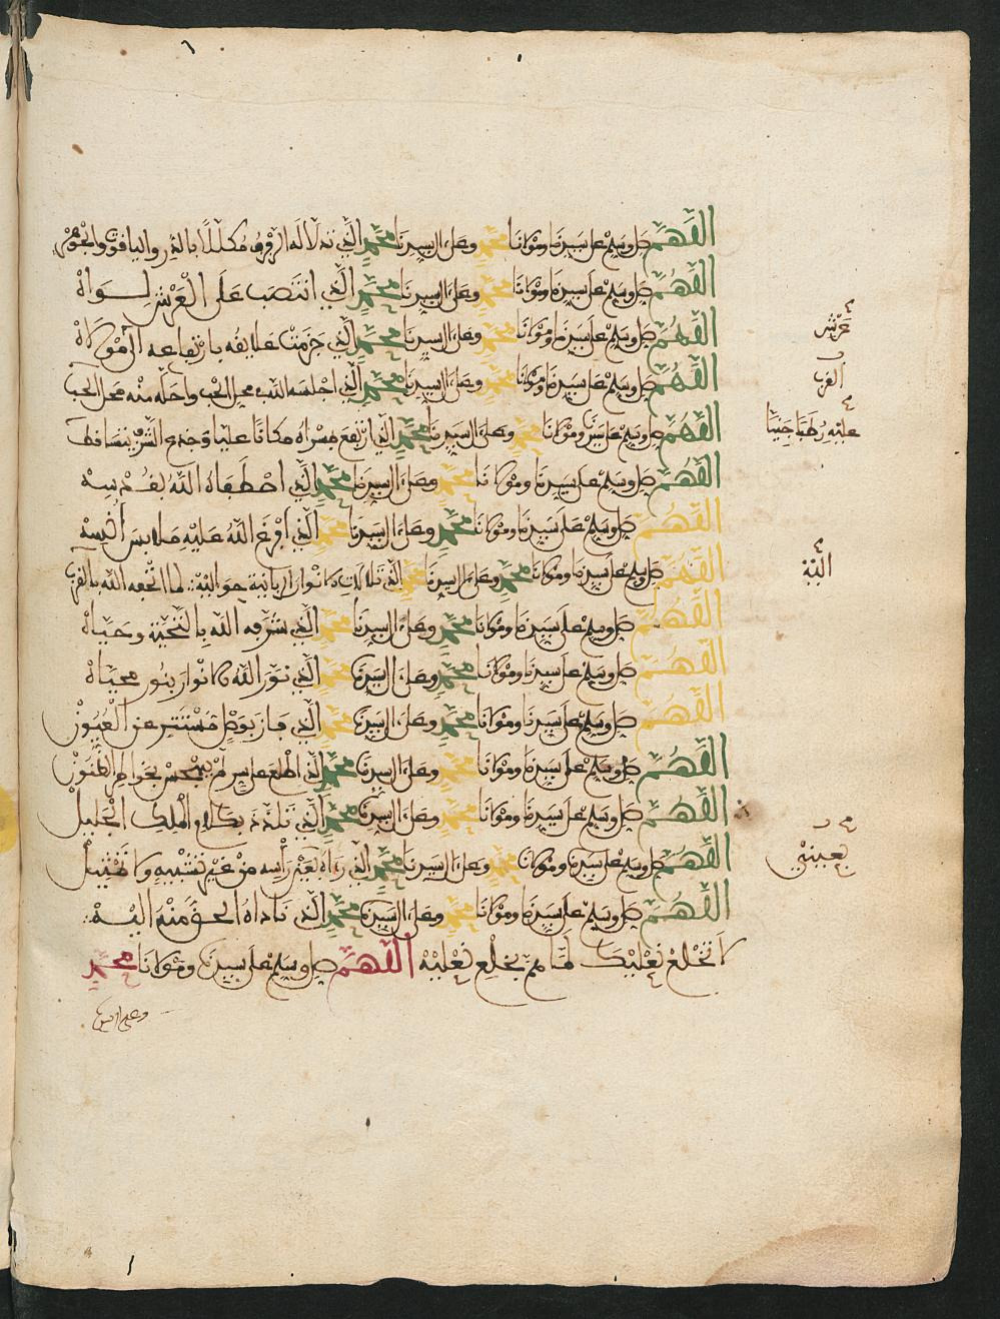 اللهم صل وسلم على سيدنا ومولانا محمد وعلى ءال سيدنا محمد الذي تدلا له الرفرف مكللا بالدر والياقوت والجوهر
اللهم صل وسلم على سيدنا ومولانا محمد وعلى ءال سيدنا محمد الذي انتصب على العرش لواه
عرش
اللهم صل وسلم على سيدنا ومولانا محمد وعلى ءال سيدنا محمد الذي جزمت علايقه بارتفاعه
اللهم صل وسلم على سيدنا ومولانا محمد وعلى ءال سيدنا محمد الذي اجلسه الله محل الحب واحله منه محل الحب
القرب
اللهم صل وسلم على سيدنا ومولانا محمد وعلى ءال سيدنا محمد الذي ارتفع مسراه مكانا عليا وجذع
عليه رطبا جنيا
اللهم صل وسلم على سيدنا ومولانا محمد وعلى ءال سيدنا محمد الذي اصطفاه الله بقدسه
اللهم صل وسلم على سيدنا ومولانا محمد وعلى ءال سيدنا محمد الذي افرغ الله عليه ملابس أنسه
اللهم صل وسلم على سيدنا ومولانا محمد وعلى ءال سيدنا محمد الذي تلالات انوار لما اتحفه الله بالقرب
اللهم صل وسلم على سيدنا ومولانا محمد وعلى ءال سيدنا محمد الذي شرفه الله بالتحية وحياه
اللهم صل وسلم على سيدنا ومولانا محمد وعلى ءال سيدنا محمد الذي نور الله الانوار بنور محياه
اللهم صل وسلم على سيدنا ومولانا محمد وعلى ءال سيدنا محمد الذي فاز بوصل مستتر عن العيون
اللهم صل وسلم على سيدنا ومولانا محمد وعلى ءال سيدنا محمد الذي اطلع على سر لم الظنون
اللهم صل وسلم على سيدنا ومولانا محمد وعلى ءال سيدنا محمد الذي تلذذ بكلام الملك الجليل
اللهم صل وسلم على سيدنا ومولانا محمد وعلى ءال سيدنا محمد الذي رءاه بعين رأسه من غير تشبيه ولا تمثيل
بعينين
اللهم صل وسلم على سيدنا ومولانا محمد وعلى ءال سيدنا محمد الذي ناداه الحق منه اليه
لا تخلع نعليك لما لم يخلع نعليه اللهم صل وسلم على سيدنا ومولانا محمد
وعلى ءال سيدنا